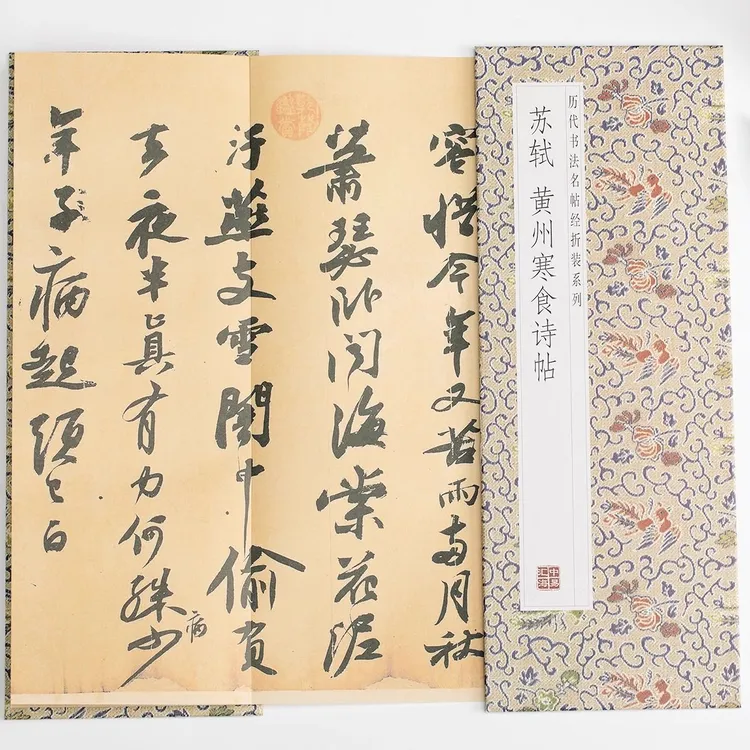 历代书法名帖经折装系列
苏轼 黄州寒食诗帖
中易汇海
容惜今年又苦雨兩月秋
蕭瑟卧聞海棠花泥
汙燕支雪闇中偷負
去夜半真有力何殊少
病
年子病起頭已白